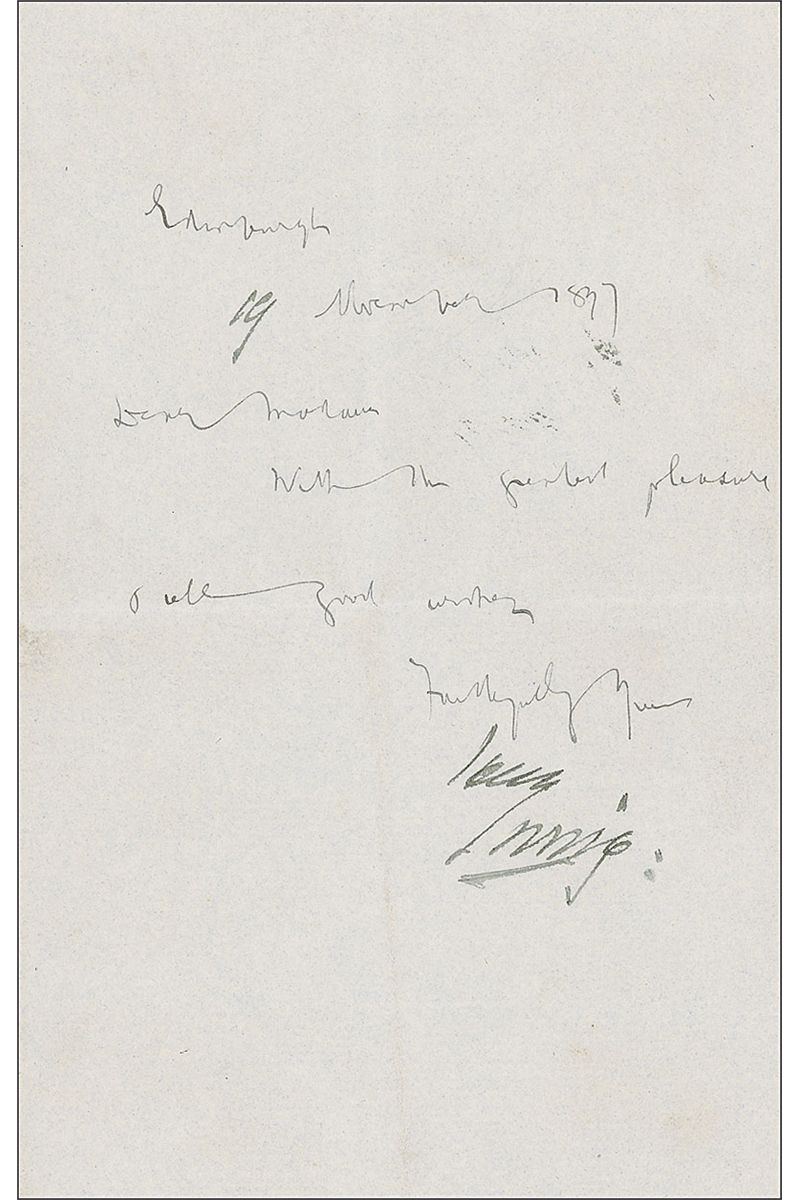 Edinburgh
19 November 1897
Dear Madam
With the greatest pleasure
& all good wishes
Faithfully Yours
Henry
Irving.